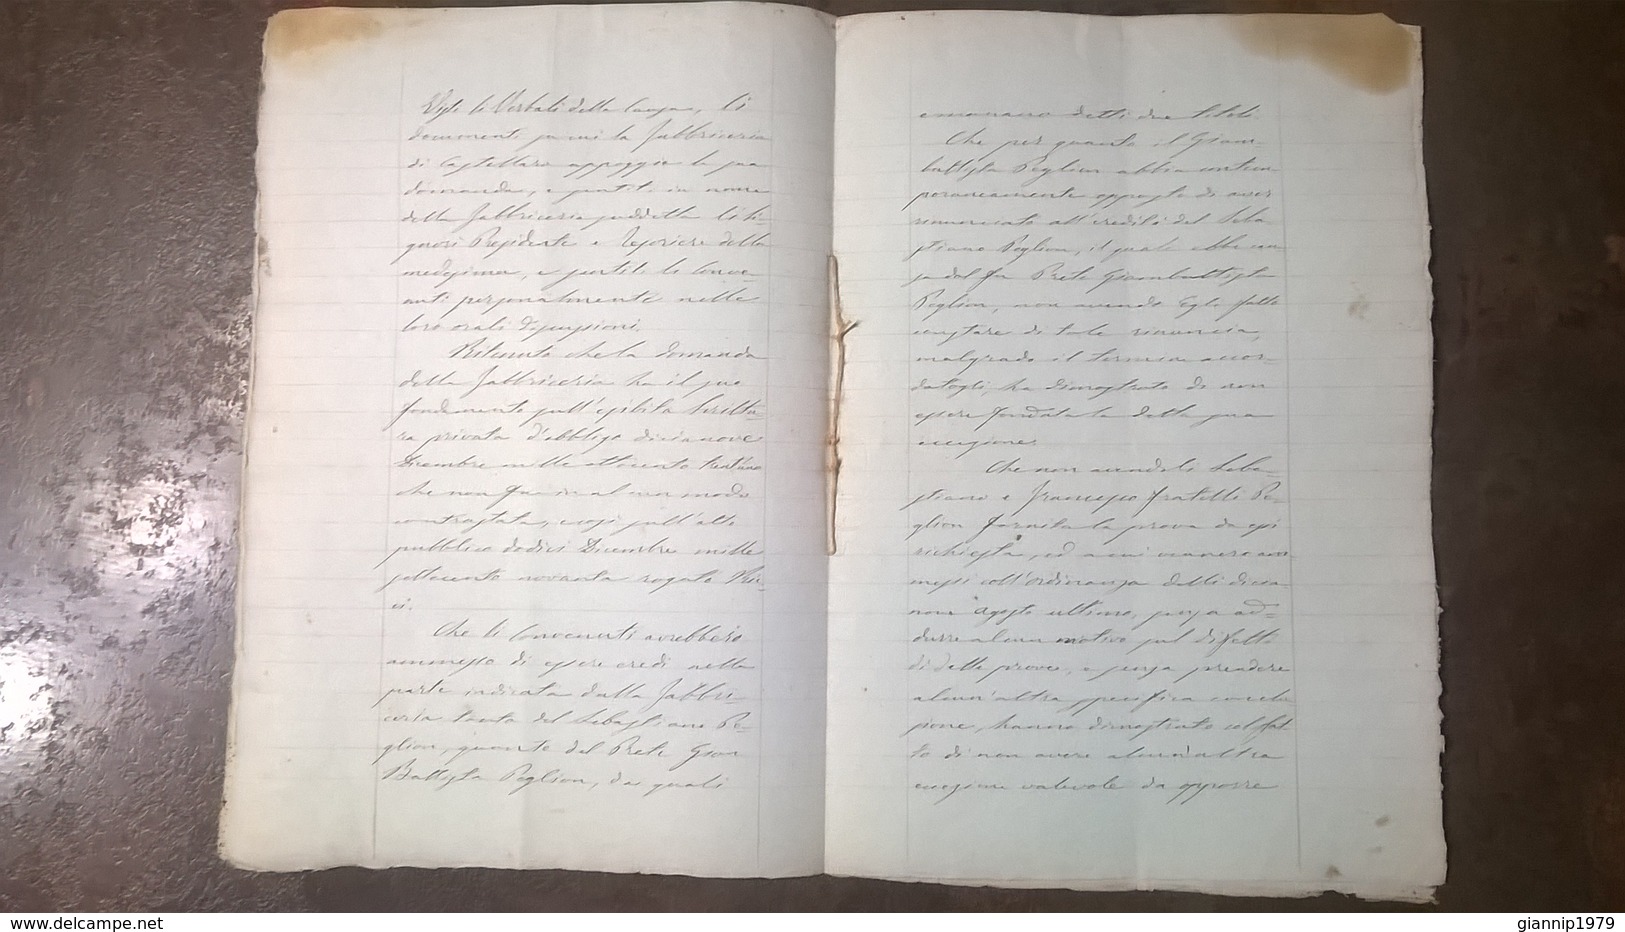 Visti li Verbali della Causa, li
documenti su cui la Fabbriceria
di Castellaro appoggia la sua
domanda, e sentiti in nome
della Fabbriceria suddetta li Si-
gnori Presidente e Tesoriere della
medesima, e sentiti li Conve-
nuti personalmente nelle
loro orali deduzioni.
Ritenuto che la domanda
della Fabbriceria ha il suo
fondamento sull'esibita Scrittu-
ra privata d'obbligo diecianove
Dicembre mille ottocento trent'uno
che non fu in alcun modo
contrastata, e così sull'atto
pubblico dodici Dicembre mille
settecento novanta rogato
ci.
Che li Convenuti avrebbero
ammesso di essere eredi nella
parte indicata dalla Fabbri-
ceria tanto del Sebastiano Pa-
glion, quanto del Prete Gion
Battista Poglion, dai quali
emanano detti due titoli.
Che per quanto il Giam-
battista Poglion abbia contem-
poraneamente opposto di aver
rinunciato all'eredità del Seba-
stiano Poglion, il quale ebbe cau-
sa dal fu Prete Giambattista
Poglion, non avendo Egli fatto
constare di tale rinuncia,
malgrado il termine accor-
datogli, ha dimostrato di non
essere fondata la detta sua
eccezione.
Che non avendo li Seba-
stiano e Francesco fratelli Po-
glion fornita la prova da essi
richiesta, ed a cui vennero am-
messi coll'ordinanza delli diecia-
nove Agosto ultimo, senza ad-
durre alcun motivo sul difetto
di dette prove, e senza prendere
alcun'altra specifica conclu-
sione, hanno dimostrato col fat-
to di non avere alcun'altra
eccezione valevole da opporre
giannip1979
www.delcampe.net